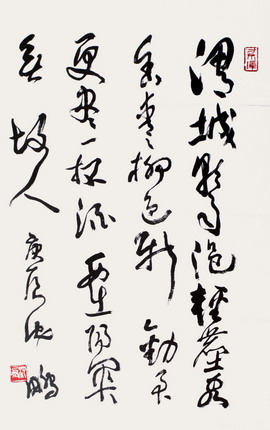 渭城朝雨浥輕塵客
舍青青柳色新勸君
更盡一杯酒西出陽關
無故人庚辰沈鵬